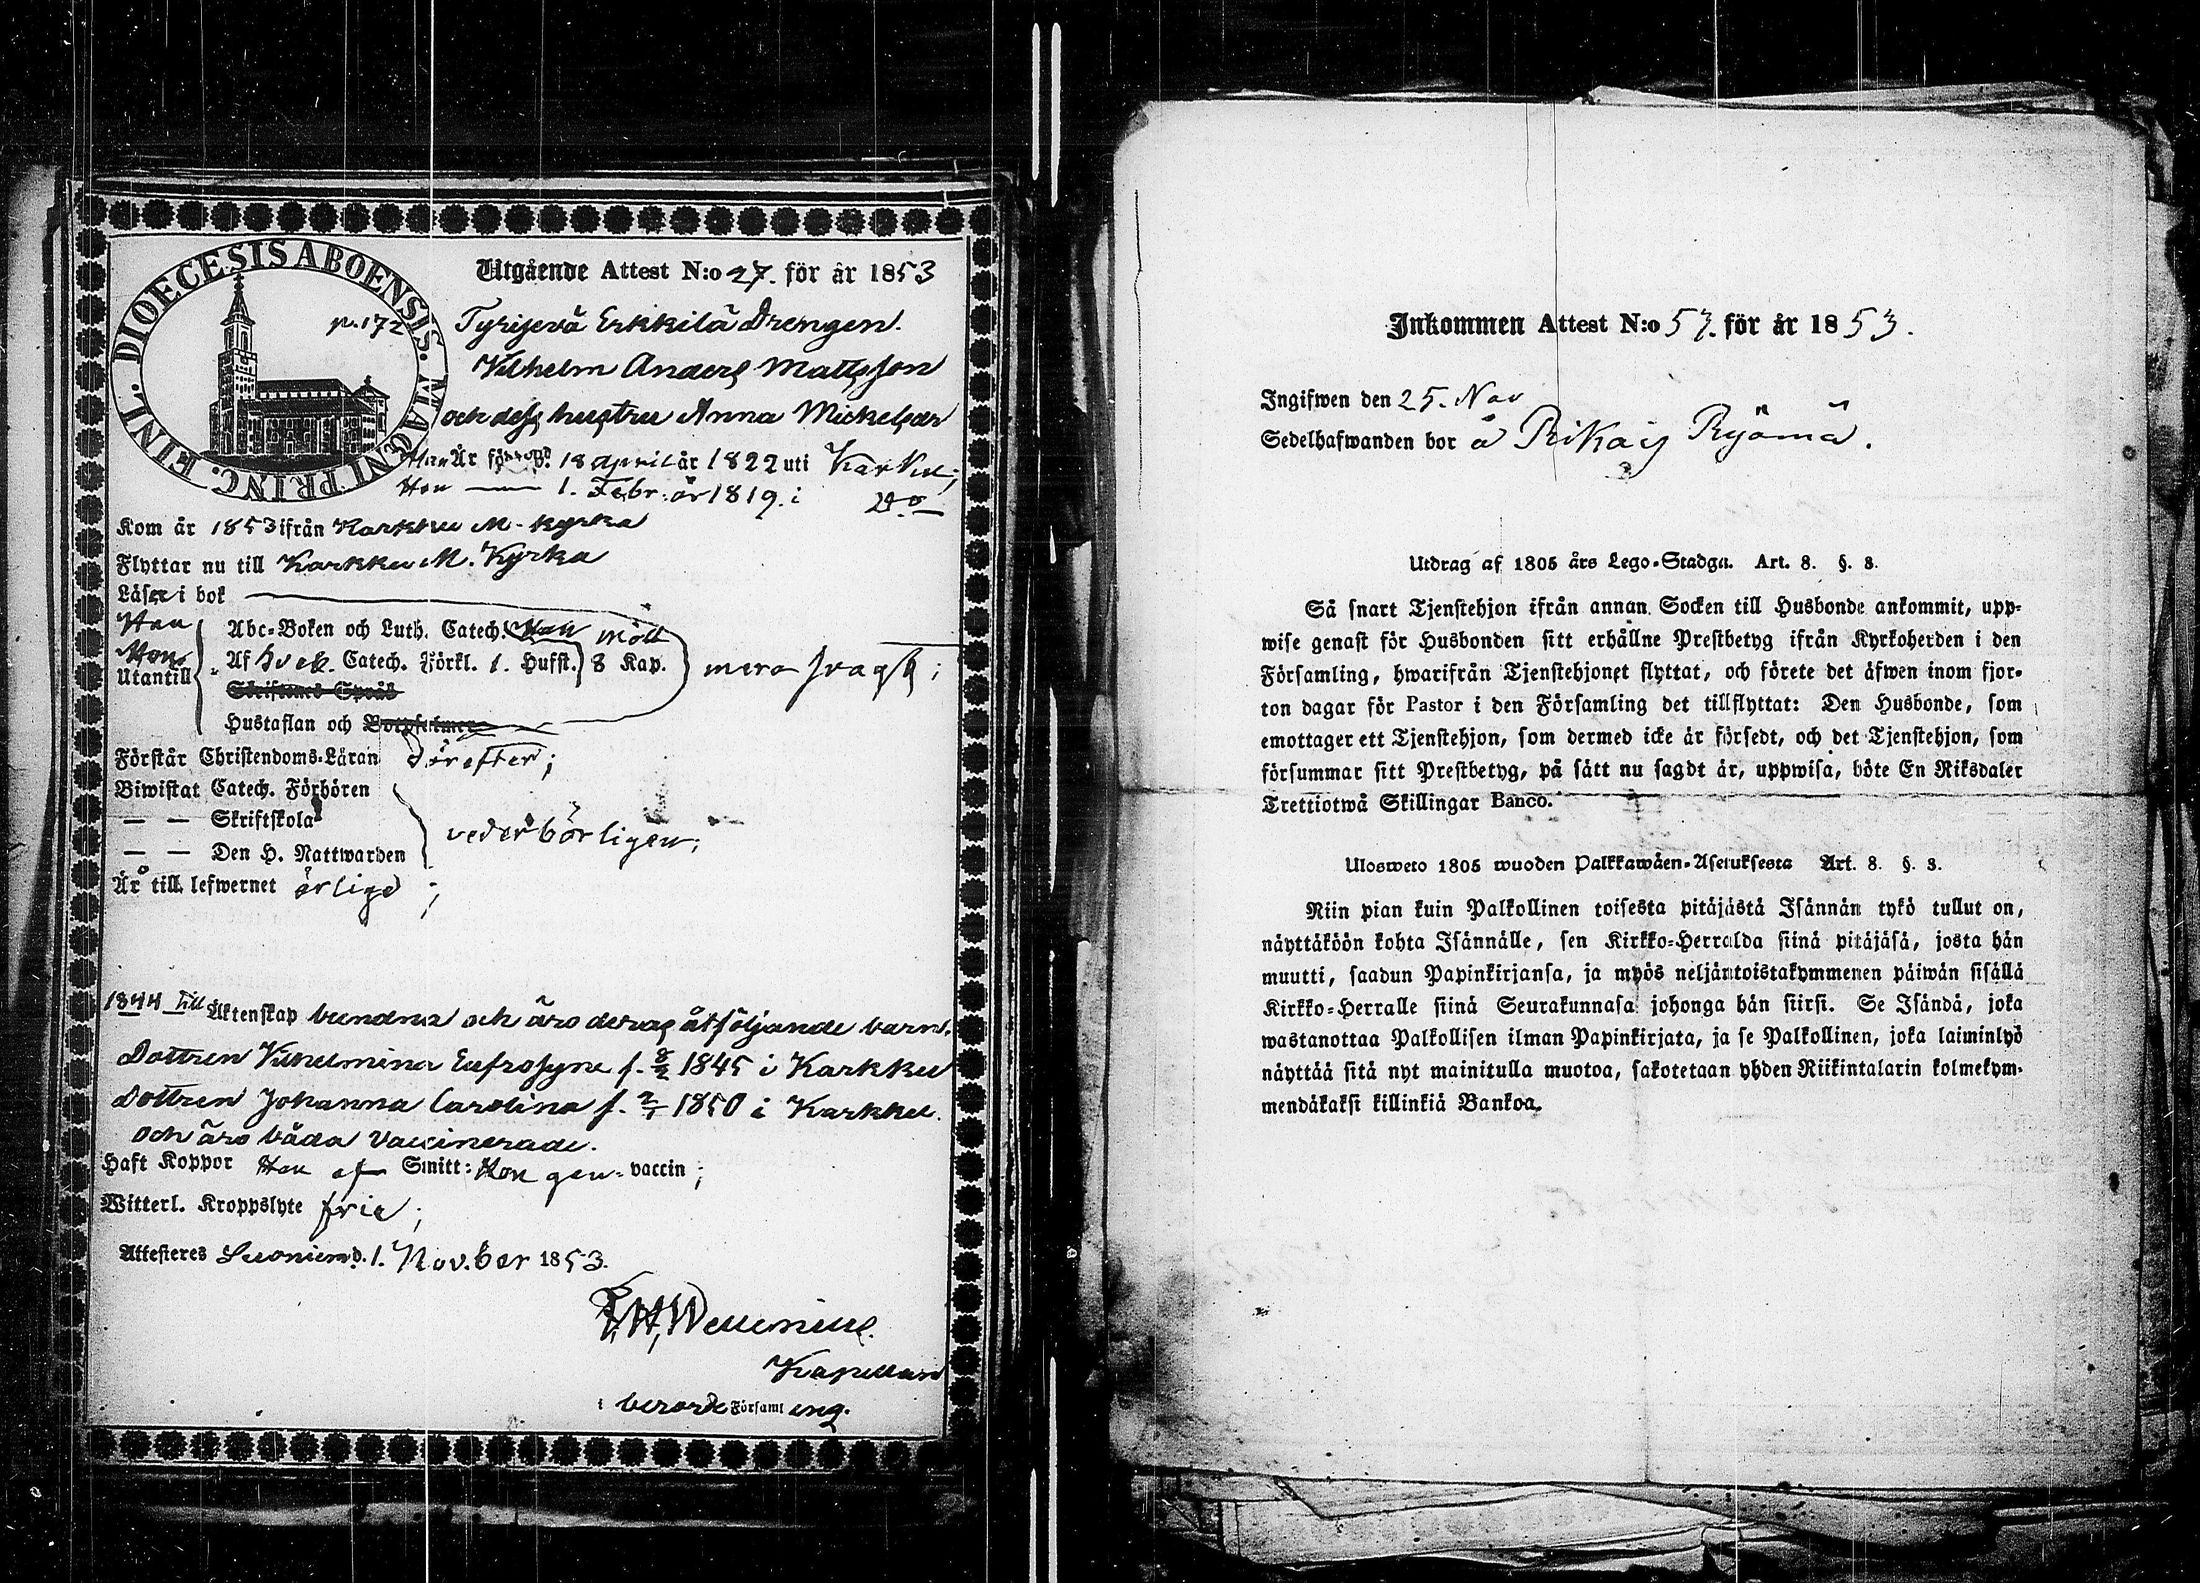 DIOECESIS ABOENSIS. MAGNI PRINC. FINL.
Utgående Attest N:o 27. för år 1853
p. 172
Tyrisevä Erkkilä Drengen
Vilhelm Anders Mattsson
och dess hustru Anna Mickelsdr
Han Är född d. 18 April år 1822 uti Karkku;
Hon — 1. Febr. år 1819 i Do
Kom år 1853 ifrån Karkku M. kyrka
Flyttar nu till Karkku M. Kyrka
Läser i bok
Abc-Boken och Luth. Catech.
Af Catech. Förkl. 1. Husst. 8 Kap.
Utantill
mera svagt;
Skriftenes Språk
Hustaflan och Botpsalmer
Förstår Christendoms-Läran därefter;
Biwistat Catech. Förhören
— — Skriftskola
vederbörligen;
— — Den H. Nattwarden
Är till lefwernet ärlige;
1844 till Äktenskap bundna och äro deras åtföljande barn,
Dottren Vilhelmina Eufrosyne f. 8/2 1845 i Karkku
Dottren Johanna Carolina f. 2/1 1850 i Karkku.
och äro båda Vaccinerade.
Haft Koppor Han af Smitt: Hon gen- vaccin;
Witterl. Kroppslyte fria;
Attesteres Suoniemi d. 1. November 1853.
Kapellan
i berörde Församl eng.
Inkommen Attest N:o 57. för år 1853.
Ingifwen den 25. Nov
Sedelhafwanden bor å Ryömä.
Utdrag af 1805 års Lego-Stadga. Art. 8. §. 8.
Så snart Tjenstehjon ifrån annan Socken till Husbonde ankommit, upp-
wise genast för Husbonden sitt erhållne Prestbetyg ifrån Kyrkoherden i den
Församling, hwarifrån Tjenstehjonet flyttat, och förete det äfwen inom fjor-
ton dagar för Pastor i den Församling det tillflyttat: Den Husbonde, som
emottager ett Tjenstehjon, som dermed icke är försedt, och det Tjenstehjon, som
försummar sitt Prestbetyg, på sätt nu sagdt är, uppwisa, böte En Riksdaler
Trettiotwå Skillingar Banco.
Ulosweto 1805 wuoden Palkkawäen-Asetuksesta Art. 8. §. 8.
Niin pian kuin Palkollinen toisesta pitäjästä Isännän tykö tullut on,
näyttäköön kohta Isännälle, sen Kirkko-Herralda siinä pitäjäsä, josta hän
muutti, saadun Papinkirjansa, ja myös neljäntoistakymmenen päiwän sisällä
Kirkko-Herralle siinä Seurakunnasa johonga hän siirsi. Se Isändä, joka
wastanottaa Palkollisen ilman Papinkirjata, ja se Palkollinen, joka laiminlyö
näyttää sitä nyt mainitulla muotoa, sakotetaan yhden Riikintalarin kolmekym-
mendäkaksi killinkiä Bankoa.